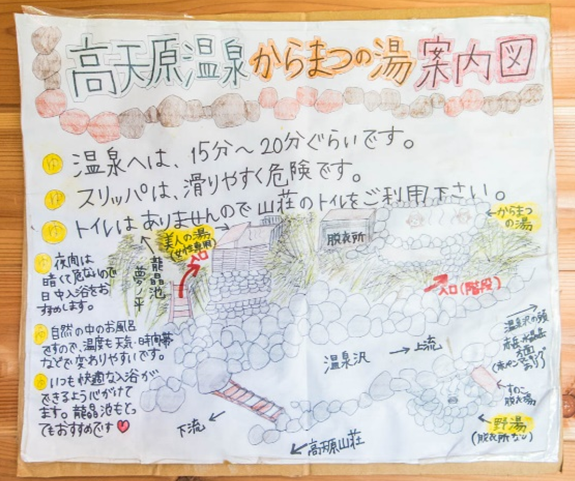 高天原温泉からまつの湯案内図
温泉へは、15分〜20分ぐらいです。
スリッパは、滑りやすく危険です。
トイルはありませんので山荘のトイレをご利用下さい。
夜間は
暗くて危ないので
日中入浴をお
すすめします。
自然の中のお風呂
ですので、温度も天気・時間帯
などで変わりやすいです。
いつも快適な入浴が
できるよう心がけて
ます。龍晶池もとっ
てもおすすめです
美人の湯
(女性専用)
入口
龍晶池
夢ノ平
脱衣所
からまつ
の湯
入口(階段)
温泉沢
上流
温泉沢の頭
赤岳・水晶岳
方面
すのこ
脱衣場
野湯
(脱衣所なし)
下流
高天原山荘